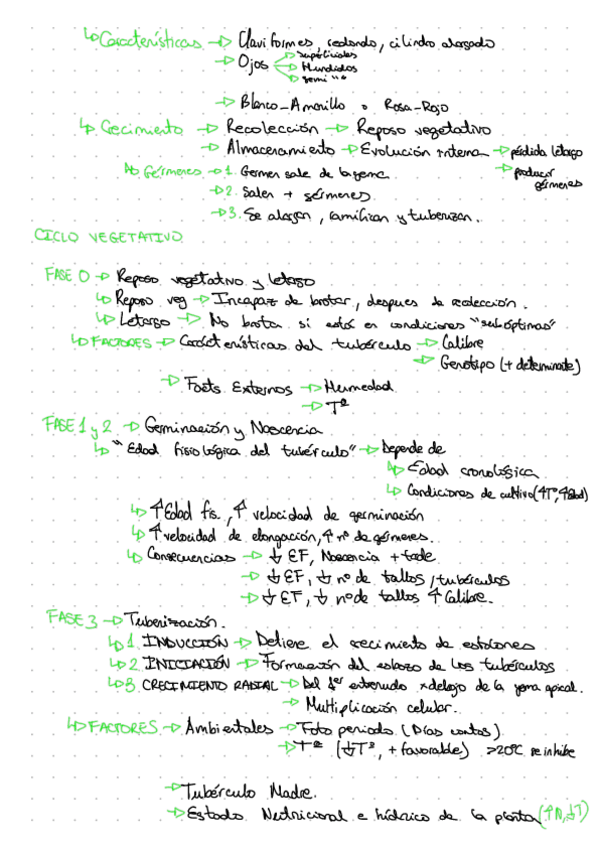 ↳ Características → Claviformes, redondo, cilindro alargado
→ Ojos → superficiales
→ Hundidos
→ semi "
→ Blanco_Amarillo o Rosa_Rojo
↳ Crecimiento → Recolección → Reposo vegetativo
→ Almacenamiento → Evolución interna → pérdida letargo
→ producir gérmenes
Gérmenes → 1. Germen sale de la yema
→ 2. Salen + gérmenes
→ 3. Se alargan, ramifican y tuberizan.
CICLO VEGETATIVO
FASE 0 → Reposo vegetativo y letargo
↳ Reposo veg → Incapaz de brotar, despues de recolección.
↳ Letargo → No brotan si están en condiciones "subóptimas"
↳ FACTORES → Características del tubérculo → Calibre
→ Genotipo (+ determinante)
→ Facts. Externos → Humedad
→ Tª
FASE 1 y 2 → Germinación y Nascencia
↳ "Edad fisiológica del tubérculo" → Depende de
↳ Edad cronológica
↳ Condiciones de cultivo (↑Tº, ↑Edad)
↳ ↑ Edad fís., ↑ velocidad de germinación
↳ ↑ velocidad de elongación, ↑ nº de gérmenes.
↳ Consecuencias → ↓ EF, Nascencia + tarde
→ ↓ EF, ↓ nº de tallos / tubérculos
→ ↓ EF, ↓ nº de tallos ↑ Calibre.
FASE 3 → Tuberización.
↳ 1. INDUCCIÓN → Detiene el crecimiento de estolones
↳ 2. INICIACIÓN → Formación del esbozo de los tubérculos
↳ 3. CRECIMIENTO RADIAL → Del 1er entrenudo x debajo de la yema apical.
→ Multiplicación celular.
↳ FACTORES → Ambientales → Foto periodo (Días cortos)
→ Tª (↓Tª, + favorable) >20ºC se inhibe
→ Tubérculo Madre.
→ Estado Nutricional e hídrico de la planta (↑N, ↓T)